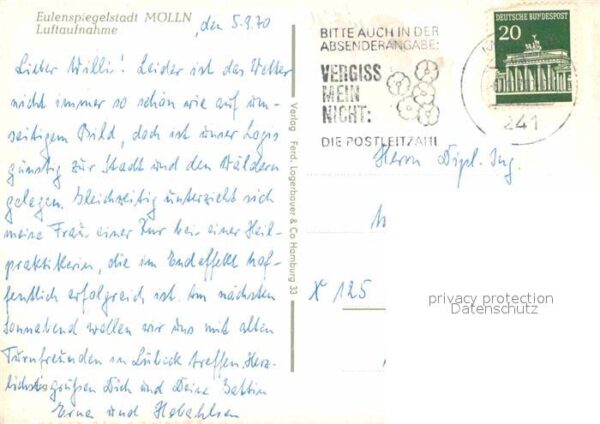 Eulenspiegelstadt MÖLLN
Luftaufnahme
, den 5.9.70
Lieber Willi! Leider ist das Wetter
nicht immer so schön wie auf um-
seitigem Bild, doch ist unser Logis
günstig zur Stadt und den Wäldern
gelegen. Gleichzeitig unterzieht sich
meine Frau einer Kur bei einer Heil-
praktikerin, die im Endeffekt hof-
fentlich erfolgreich ist. Am nächsten
Sonnabend wollen wir uns mit alten
Turnfreunden in Lübeck treffen. Herz-
lichst grüßen Dich und Deine Gattin
Erna und
Verlag Ferd. Lagerbauer & Co Hamburg 33
BITTE AUCH IN DER
ABSENDERANGABE:
VERGISS
MEIN
NICHT:
DIE POSTLEITZAHL
DEUTSCHE BUNDESPOST
20
241
Herrn Dipl. Ing.
X 125
privacy protection
Datenschutz